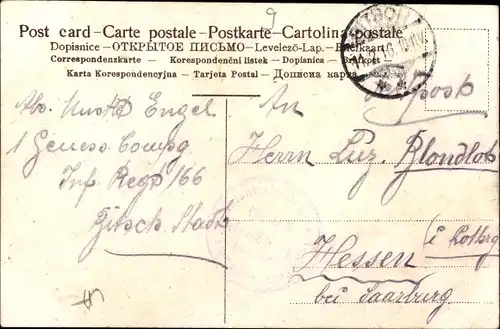 9
Post card - Carte postale - Postkarte - Cartolina postale
Dopisnice - ОТКРЫТОЕ ПИСЬМО - Levelező-Lap. - Briefkaart
Correspondenzkarte - Korespondenční listek - Dopisnica - Brefkort
Karta Korespondencyjna - Tarjeta Postal - Дописна карта
Abs. Engel
1 Geness Compg
Inf. Regt 166
Bitsch Stadt
An
Herrn Luz. Blondlot
Hessen
bei Saarburg
i Lothrg